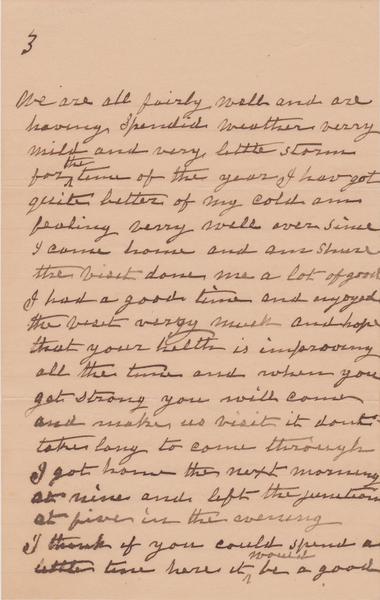 3
We are all fairly well and are
having Spendid weather verry
mild and very little storm
for the time of the year I hav got
quite better of my cold am
feeling verry well ever since
I came home and am Shure
the visit done me a lot of good
I had a good time and enjoyed
the visit verry much and hope
that your helth is improving
all the time and when you
get strong you will come
and make us visit it dont
take long to come through
I got home the next morning
at nine and left the junction
at five in the evening
I think if you could spend a
little time here it would be a good